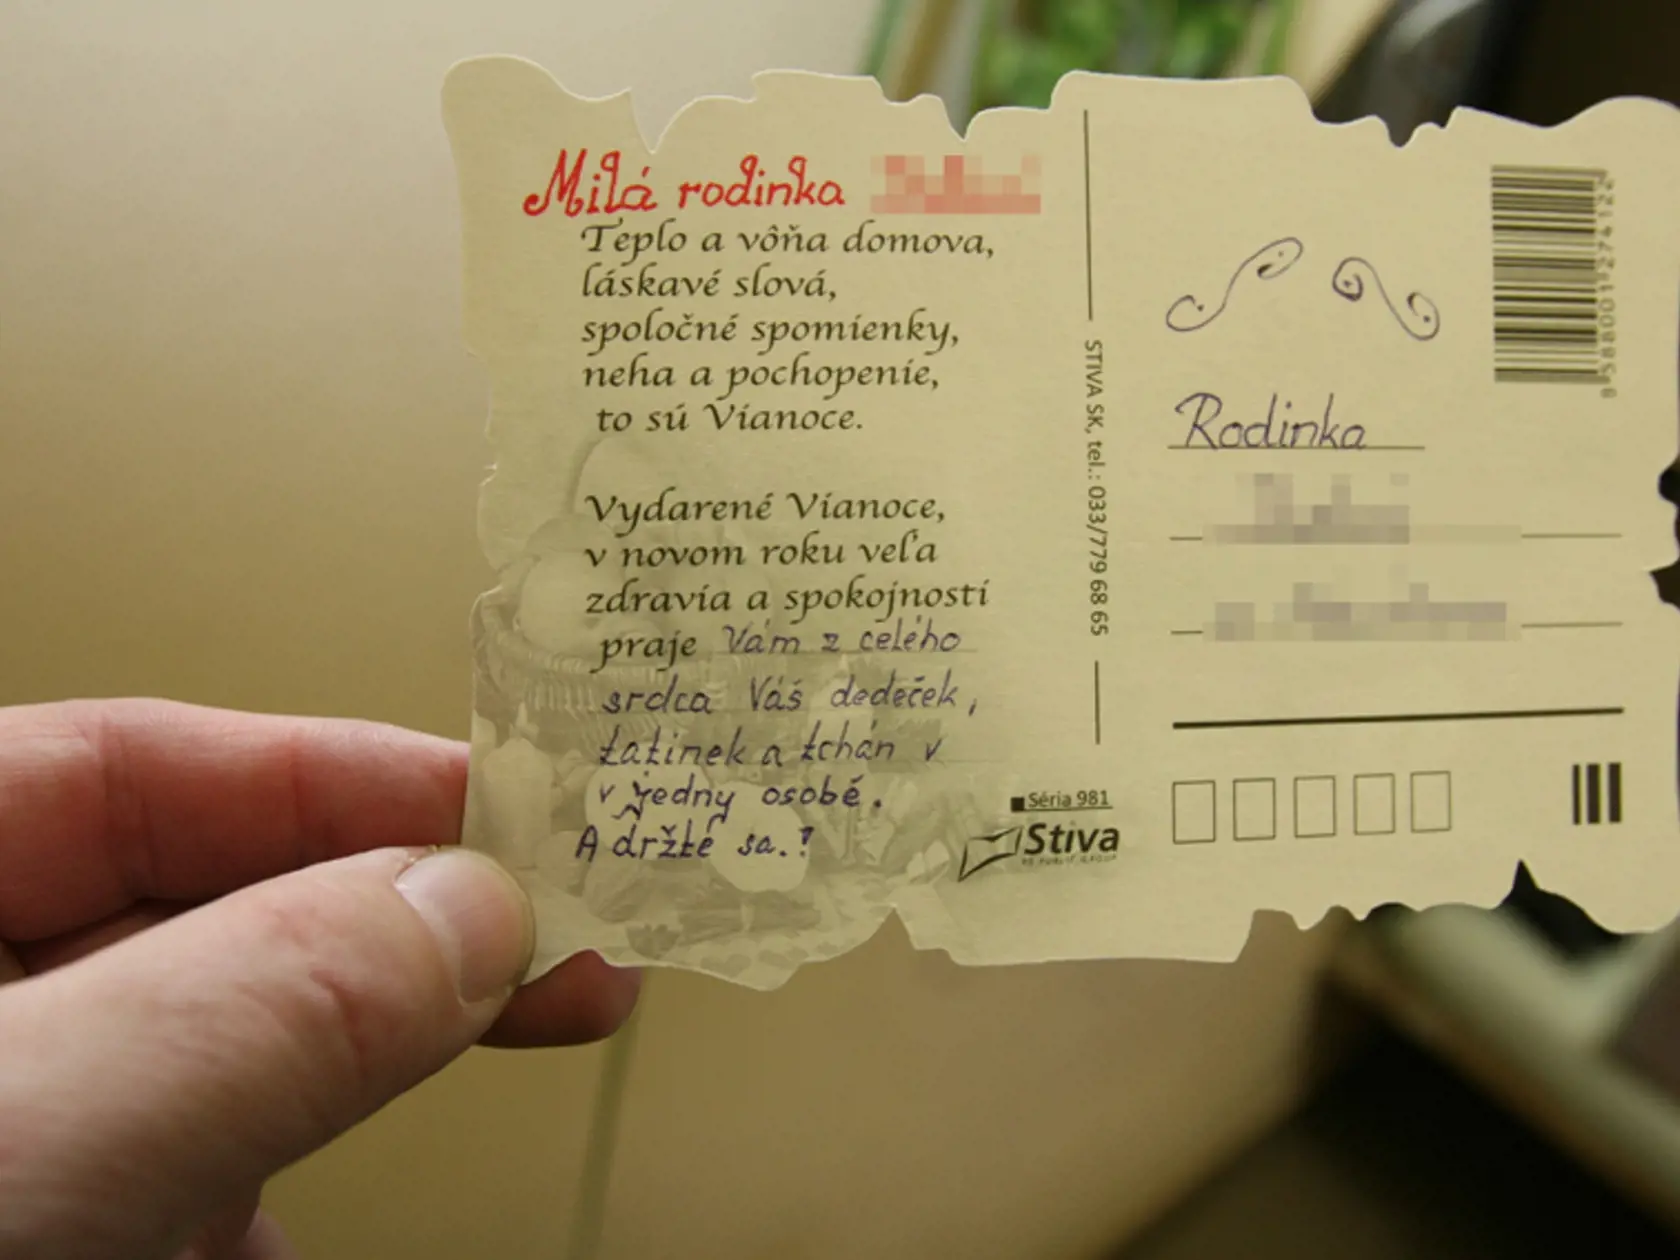 Milá rodinka
Teplo a vôňa domova,
láskavé slová,
spoločné spomienky,
neha a pochopenie,
to sú Vianoce.
Vydarené Vianoce,
v novom roku veľa
zdravia a spokojnosti
praje Vám z celého
srdca Váš dedeček,
tatinek a tchán v
v jedny osobě.
A držte sa.!
Séria 981
Stiva
STIVA SK, tel.: 033/779 68 65
Rodinka